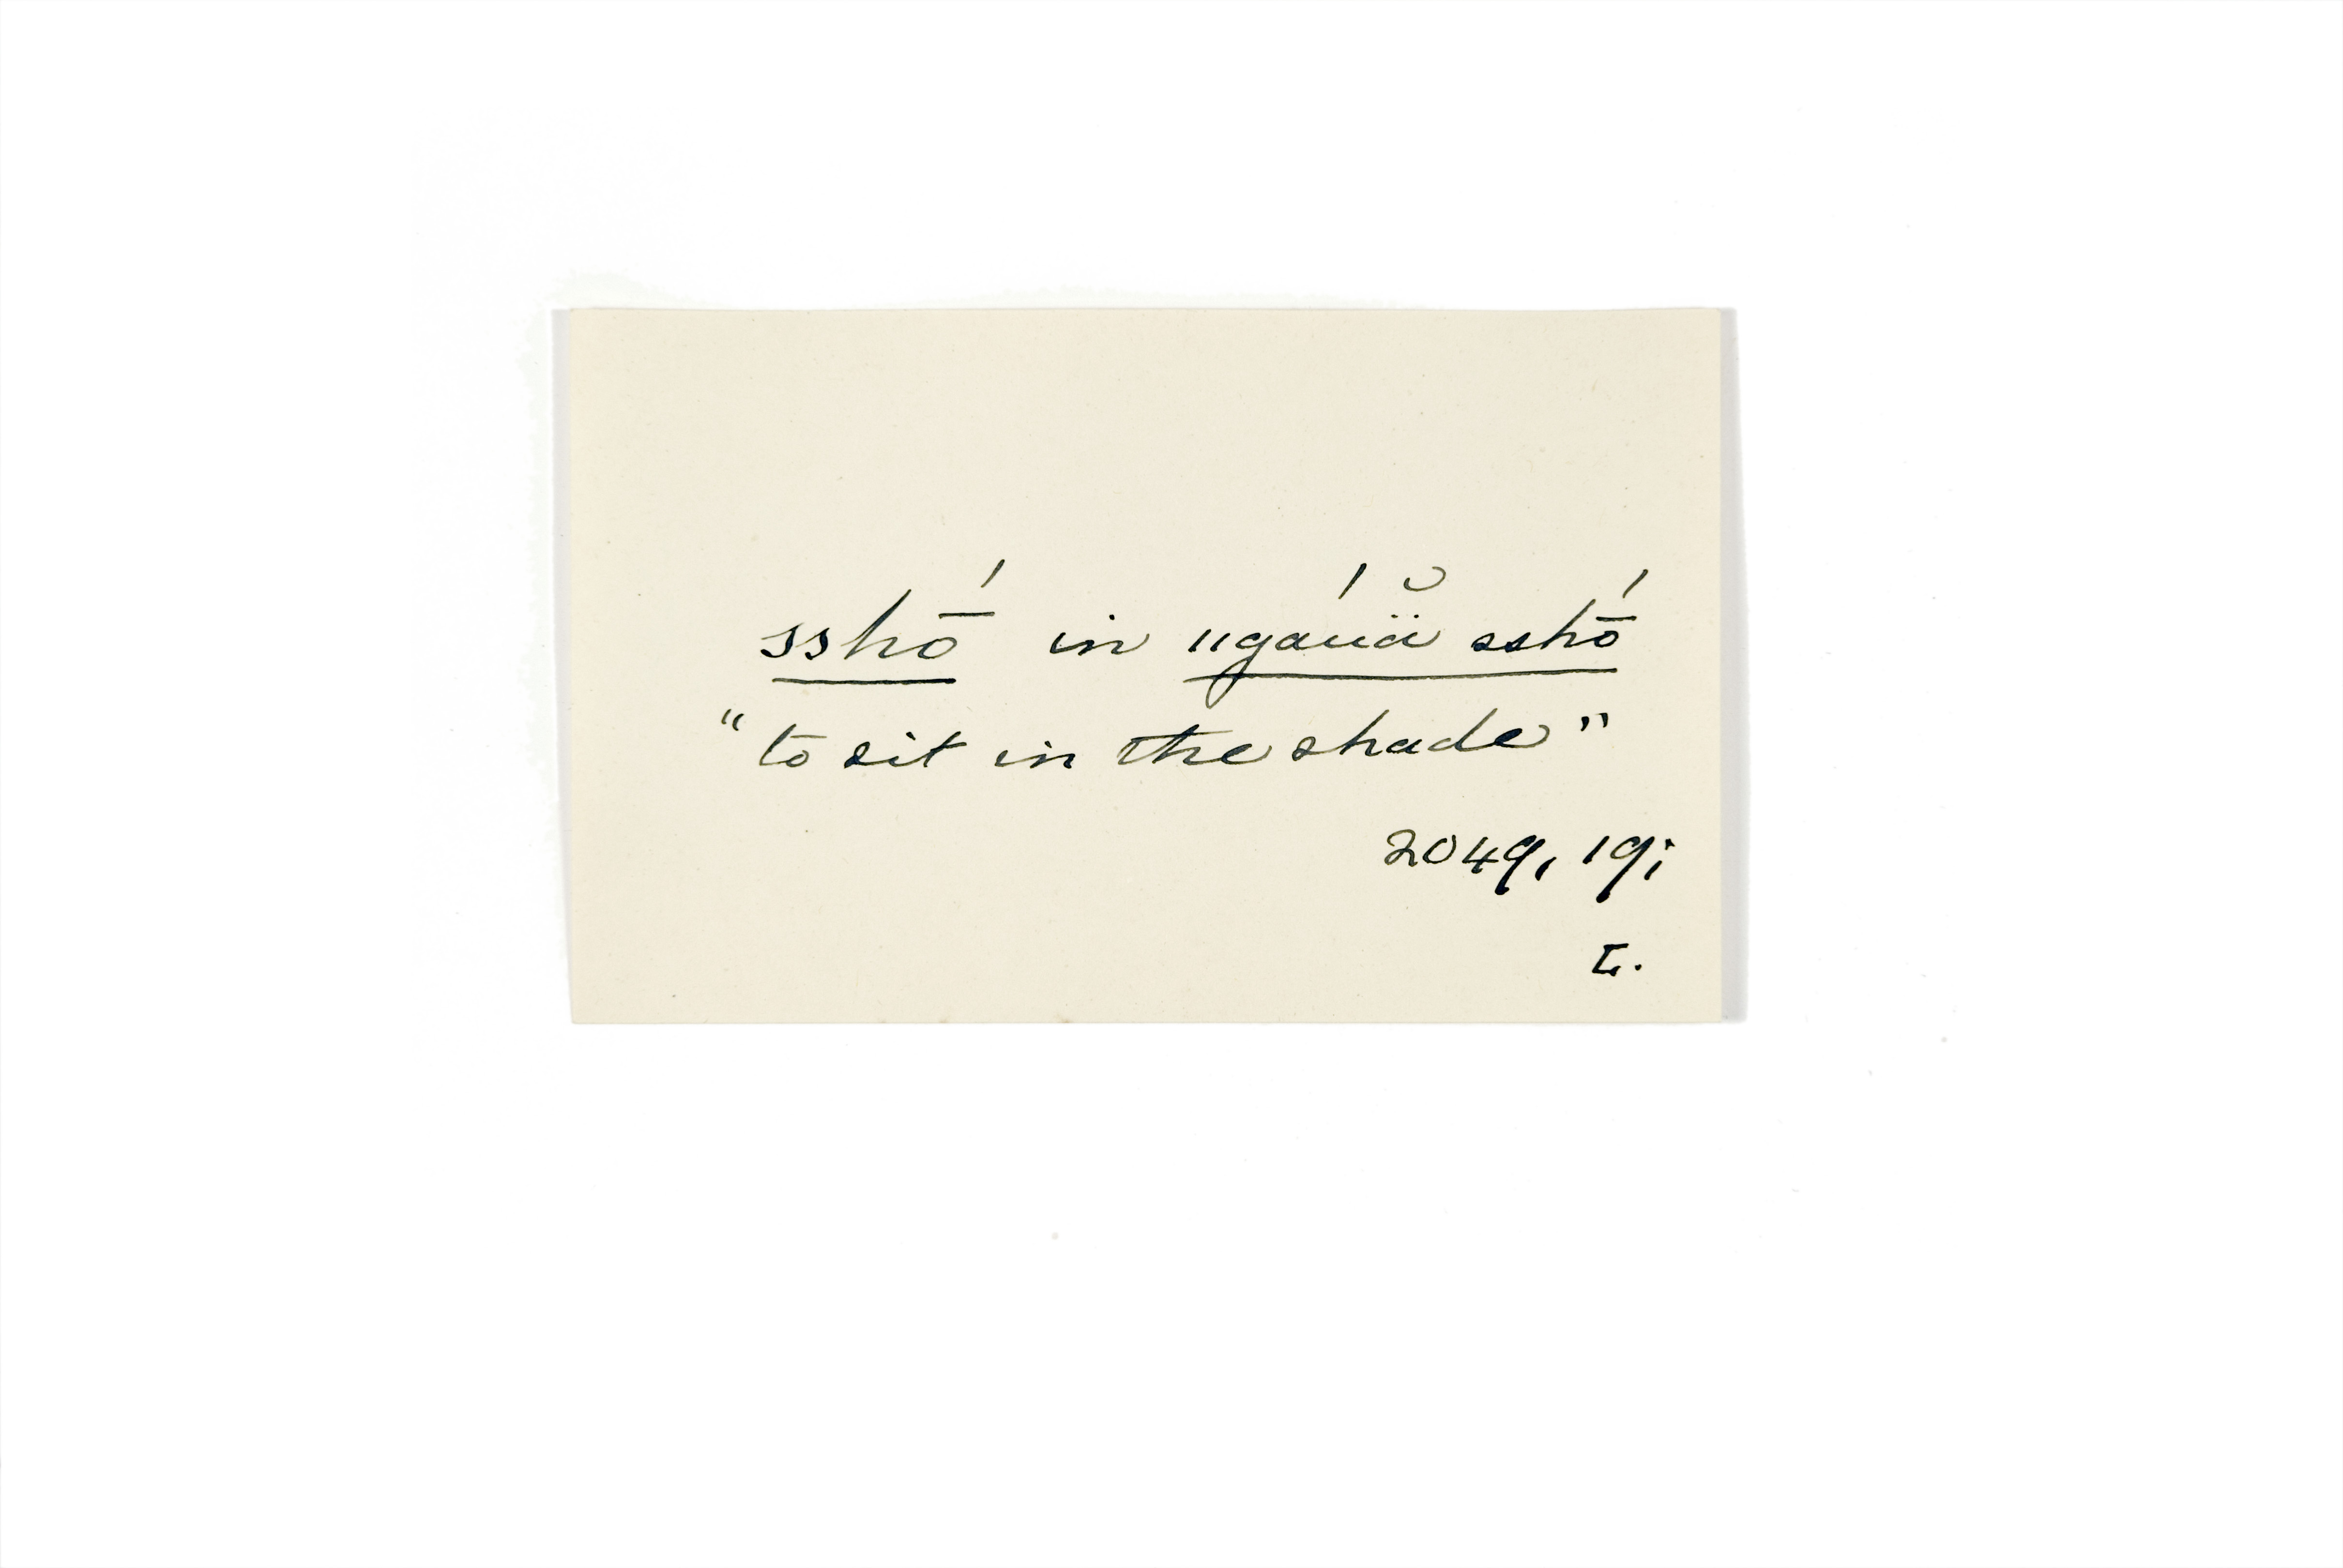 sshṓ in ǁgáuä̆ sshṓ
“to sit in the shade”
2049, 19;
L.